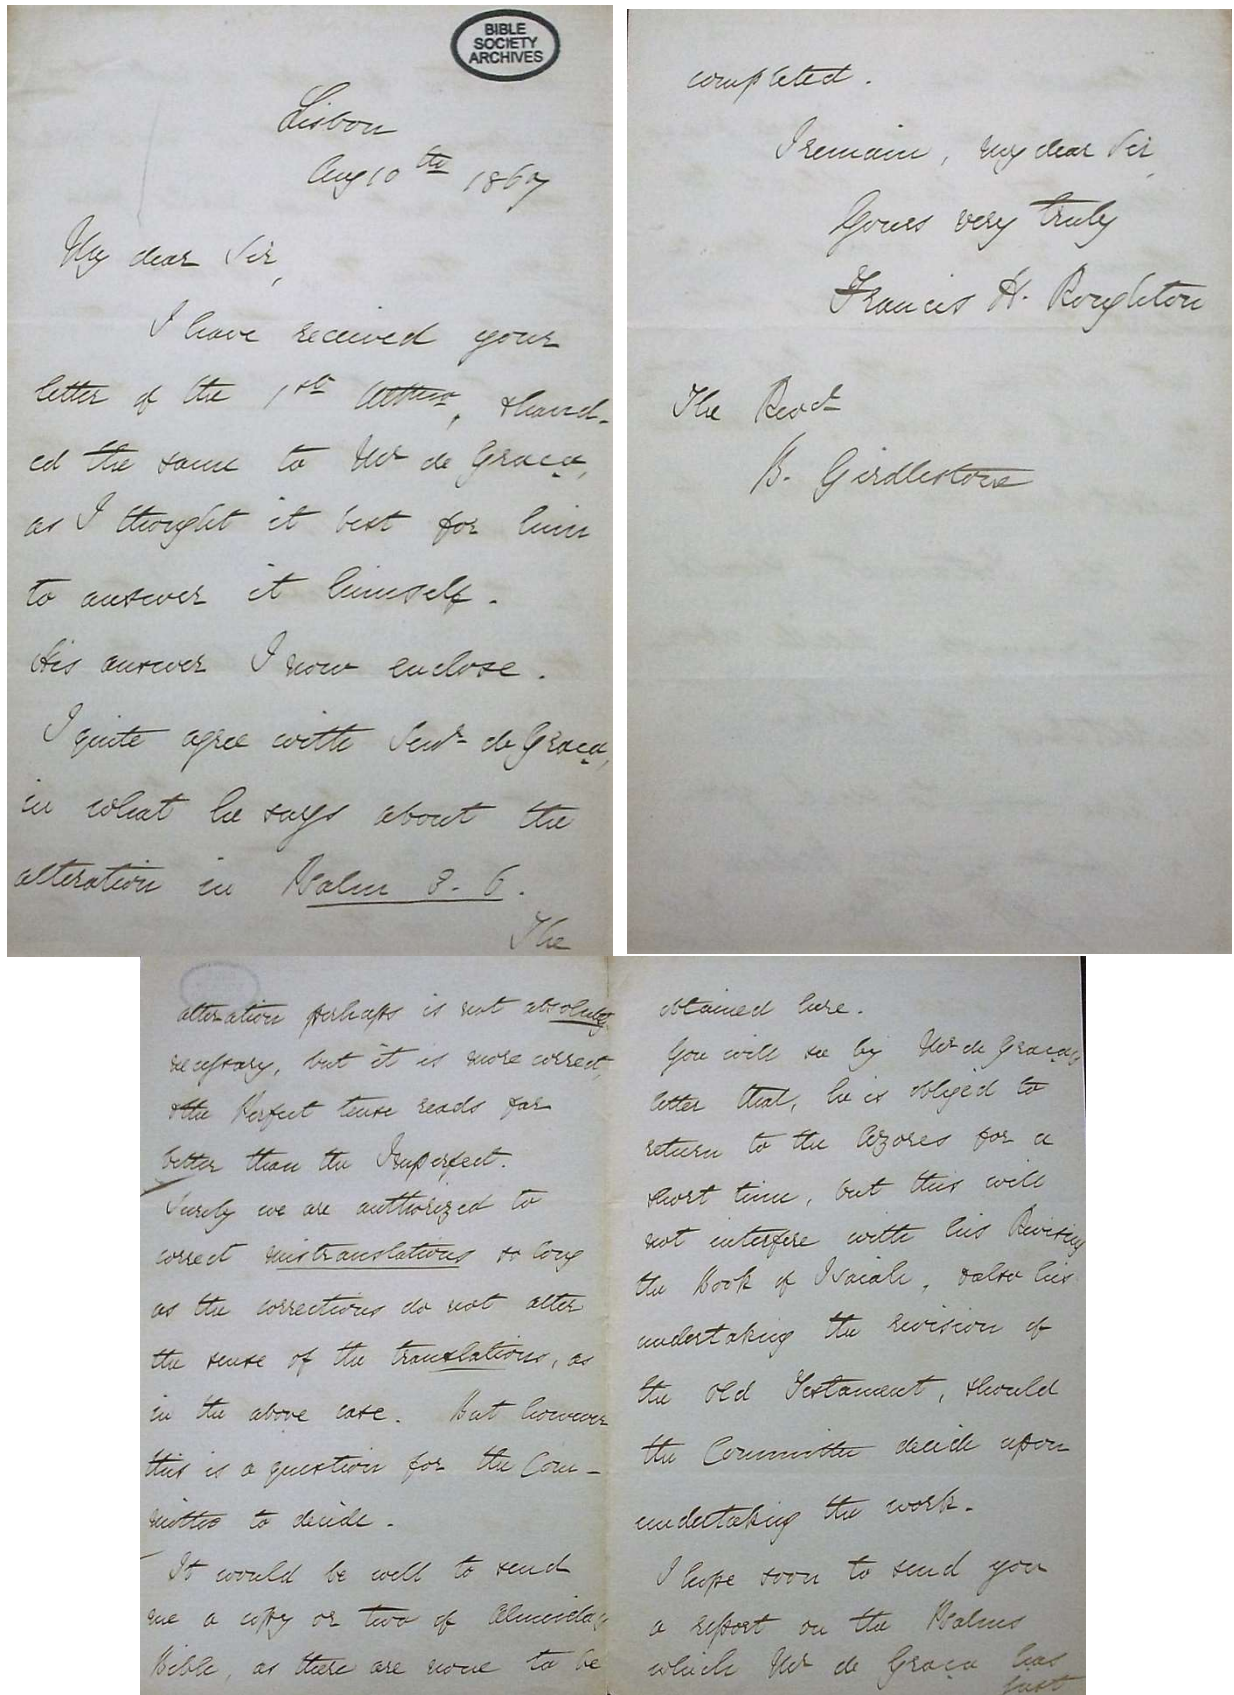 BIBLE
SOCIETY
ARCHIVES
Lisbon
Aug 10th 1867
My dear Sir,
I have received your
letter of the 1st , & hand-
ed the same to Mr de Graça,
as I thought it best for him
to answer it himself.
His answer I now enclose.
I quite agree with Senr de Graça,
in what he says about the
alteration in Psalm 8. 6.
The
alteration perhaps is not absolutely
necessary, but it is more correct,
& the Perfect tense reads far
better than the Imperfect.
Surely we are authorized to
correct mistranslations so long
as the corrections do not alter
the sense of the translations, as
in the above case. But however
this is a question for the Com-
mittee to decide.
It would be well to send
me a copy or two of Almeida's
Bible, as there are none to be
obtained here.
You will see by Mr de Graça's
letter that, he is obliged to
return to the Azores for a
short time, but this will
not interfere with his Revising
the Book of Isaiah, & also his
undertaking the revision of
the Old Testament, should
the Committee decide upon
undertaking the work.
I hope soon to send you
a report on the Psalms
which Mr de Graça has
just
completed.
I remain, my dear Sir,
Yours very truly
Francis H. Roughton
The Revd
B. Girdlestone